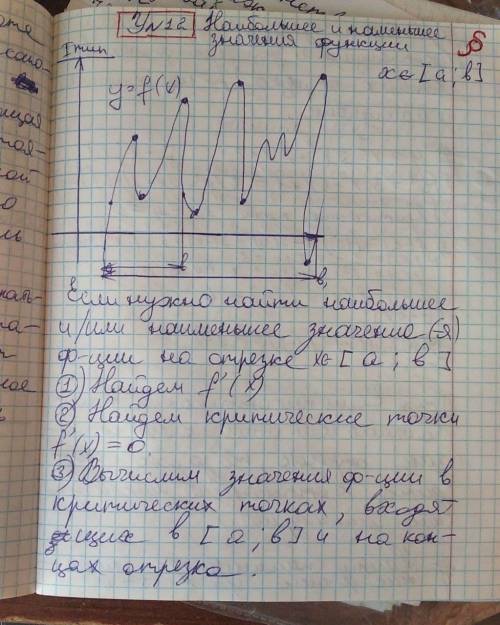 У N 12 Наибольшее и наименьшее
значения функции
I тип
x∈[a;b]
y=f(x)
b
b₁
Если нужно найти наибольшее
и/или наименьшее значение(я)
ф-ции на отрезке x∈[a;b]
1) Найдем f'(x)
2) Найдем критические точки
f'(x)=0.
3) Вычислим значения ф-ции в
критических точках, входят
щих в [a;b] и на кон-
цах отрезка.